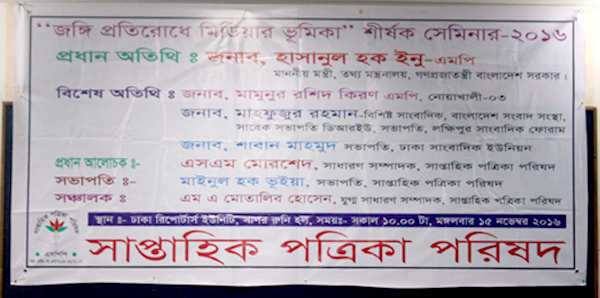 “জঙ্গি প্রতিরোধে মিডিয়ার ভূমিকা” শীর্ষক সেমিনার-২০১৬
প্রধান অতিথি ঃ জনাব, হাসানুল হক ইনু-এমপি
মাননীয় মন্ত্রী, তথ্য মন্ত্রনালয়, গণপ্রজাতন্ত্রী বাংলাদেশ সরকার।
বিশেষ অতিথি ঃ জনাব, মামুনুর রশিদ কিরণ এমপি, নোয়াখালী-০৩
জনাব, মাহফুজুর রহমান-বিশিষ্ট সাংবাদিক, বাংলাদেশ সংবাদ সংস্থা,
সাবেক সভাপতি ডিআরইউ, সভাপতি, লক্ষিপুর সাংবাদিক ফোরাম
জনাব, শাবান মাহমুদ সভাপতি, ঢাকা সাংবাদিক ইউনিয়ন
প্রধান আলোচক ঃ- এসএম মোরশেদ, সাধারণ সম্পাদক, সাপ্তাহিক পত্রিকা পরিষদ
সভাপতি ঃ- মাইনুল হক ভূইয়া, সভাপতি, সাপ্তাহিক পত্রিকা পরিষদ
সঞ্চালক ঃ- এম এ মোতালিব হোসেন, যুগ্ম সাধারণ সম্পাদক, সাপ্তাহিক পত্রিকা পরিষদ
স্থান ঃ- ঢাকা রিপোর্টার্স ইউনিটি, সাগর রুনি হল, সময়ঃ- সকাল ১০.০০ টা, মঙ্গলবার ১৫ নভেম্বর ২০১৬
সাপ্তাহিক পত্রিকা পরিষদ
সাপ্তাহিক পত্রিকা পরিষদ
এসপিপি